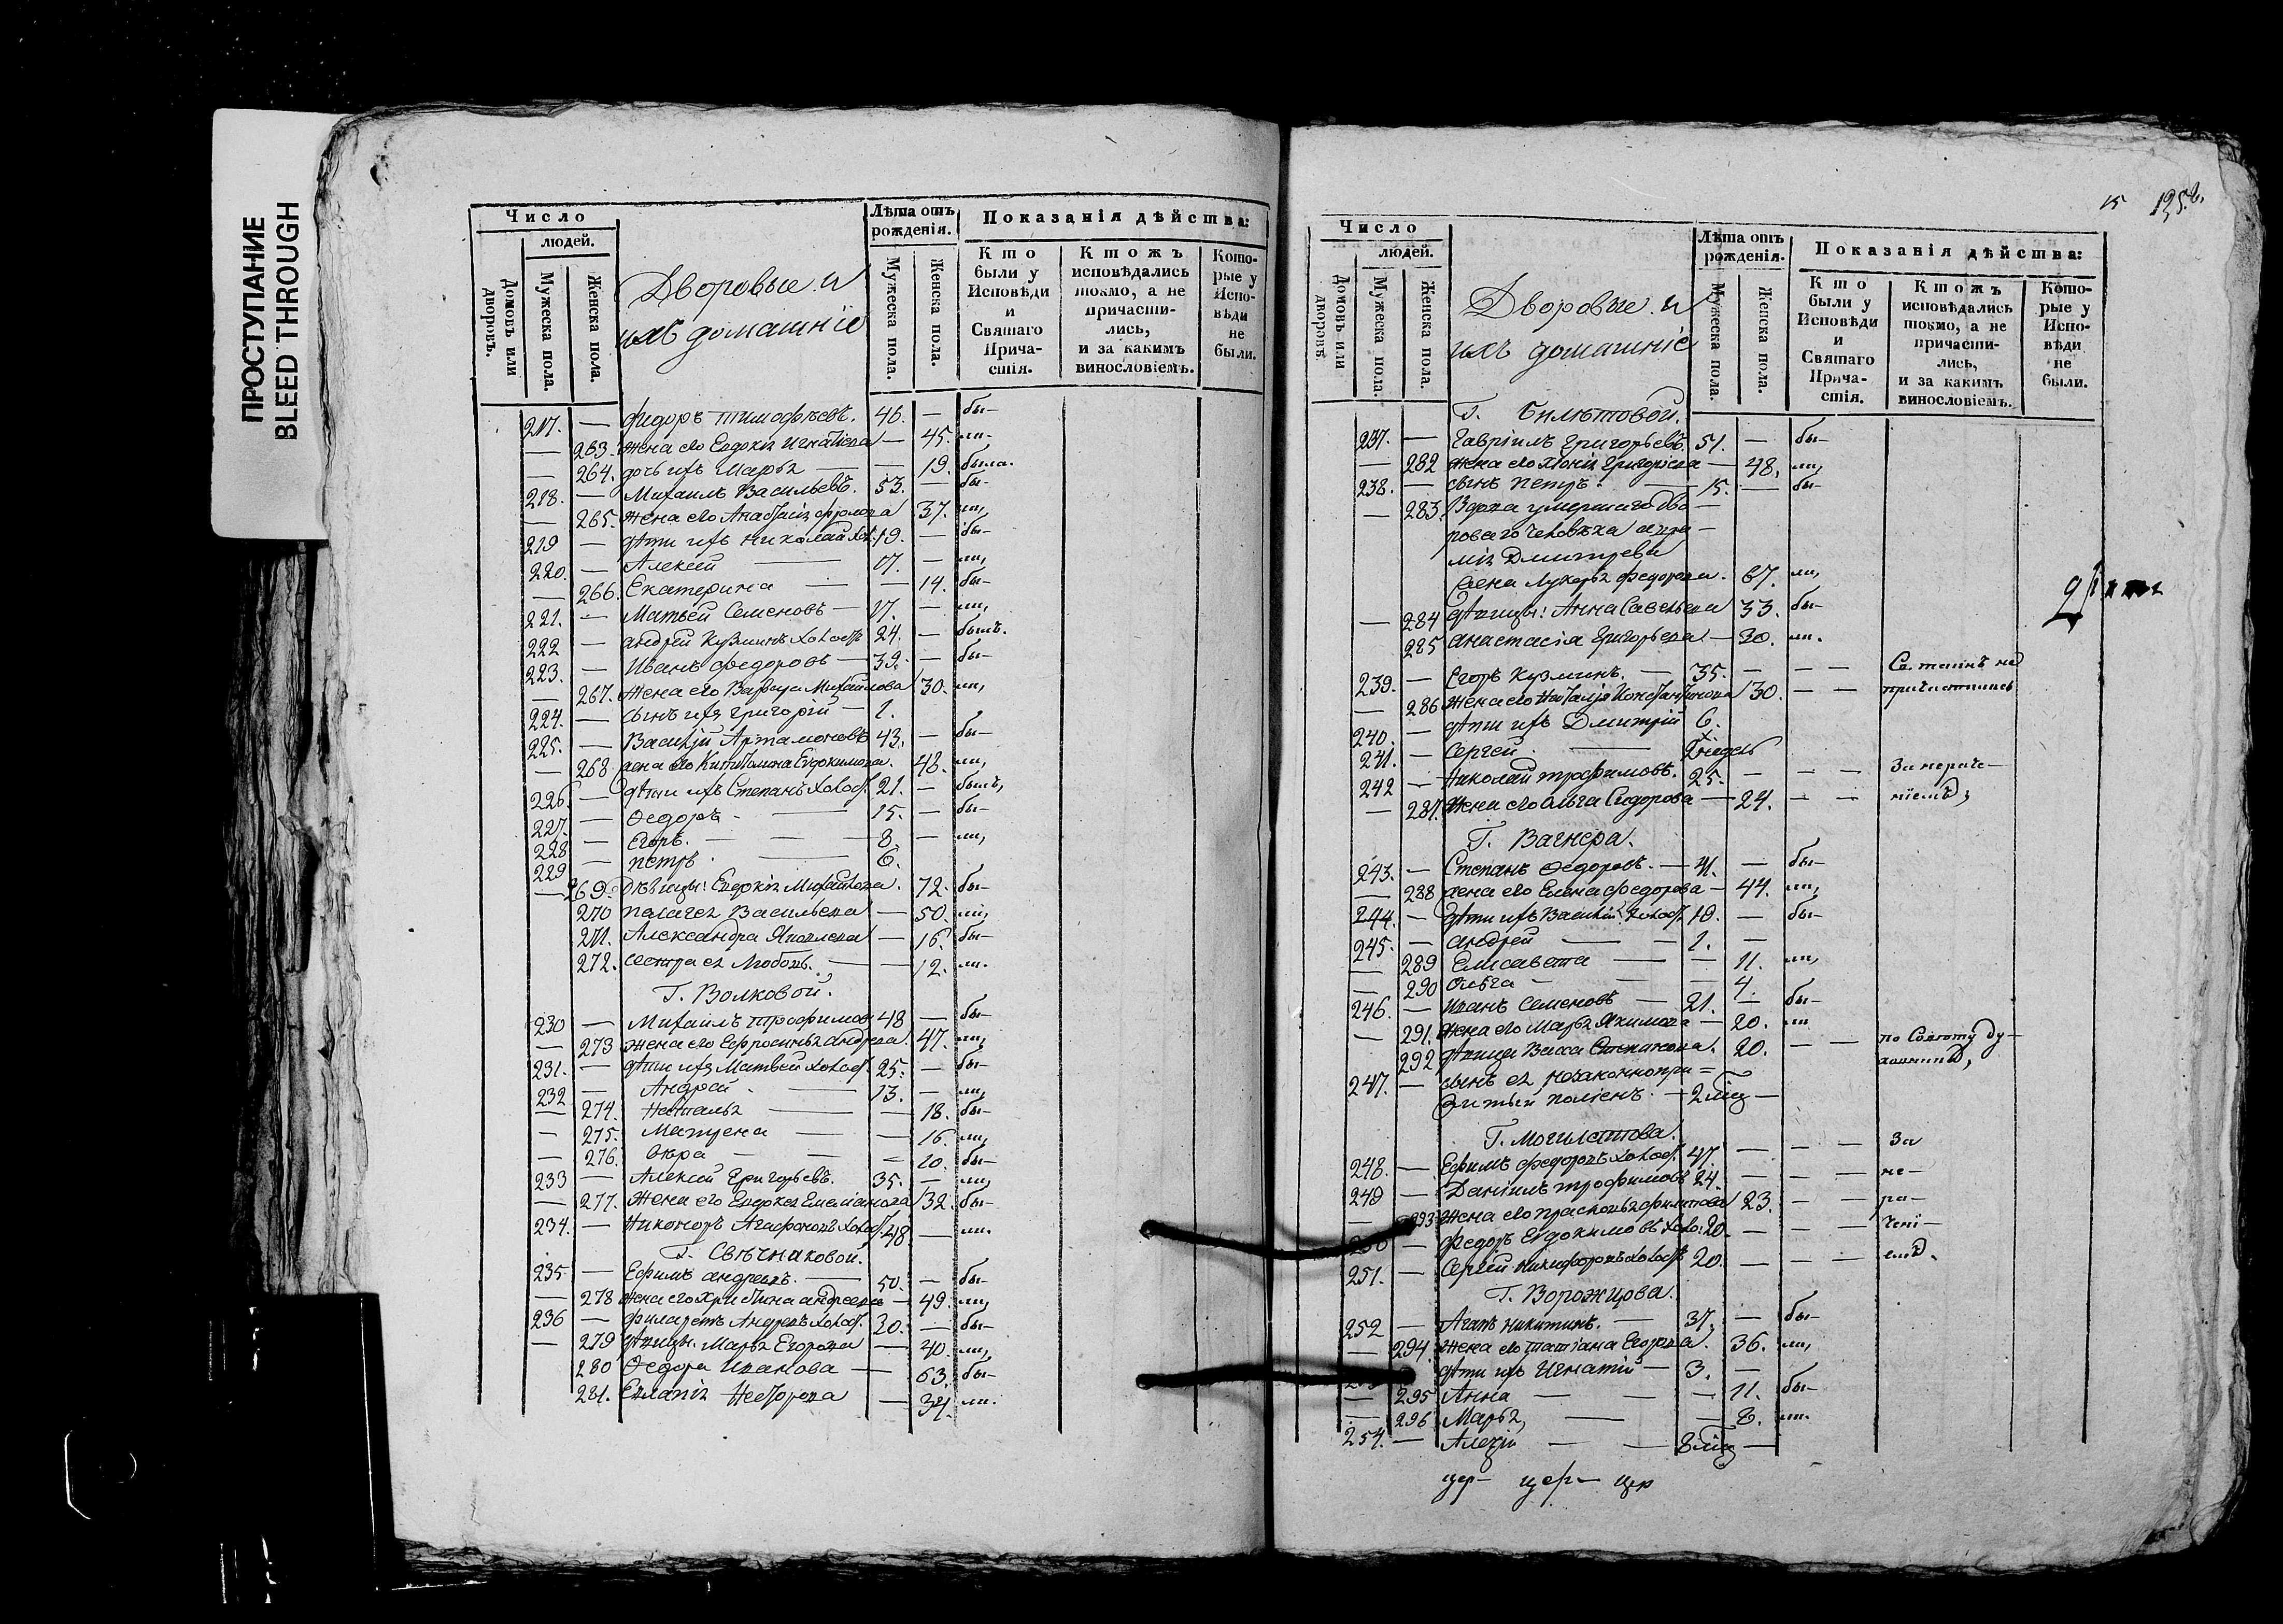 ПРОСТУПАНИЕ
BLEED THROUGH
Число
людей.
Домовъ или дворовъ.
Мужеска пола.
Женска пола.
Дворовые и
ихъ домашніе
Лѣта отъ рожденія.
Мужеска пола.
Женска пола.
Показанія дѣйства:
Кто были у Исповѣди и Святаго Причастія.
Ктожъ исповѣдались токмо, а не причастились, и за какимъ винословіемъ.
Которые у Исповѣди не были.
217. — Федоръ Тимофѣевъ. 46. — бы—
— 263. Жена его Евдокія Игнатіева — 45. ли,
— 264. дочь ихъ Марѳа — — 19. была.
218. — Михаилъ Васильевъ. 53. — бы—
— 265. Жена его Анастасія Фролова 37. ли,
219 — дѣти ихъ Николай хол. 19. — бы—
220. — Алексей — 17. — ли,
— 266. Екатерина — — 14. бы—
221. — Матвей Семеновъ — 17. — ли,
222 — андрей Кузминъ холост 24. — былъ.
223. — Иванъ Федоровъ — 39. — бы—
— 267. Жена его Варвара Михайлова 30. ли,
224. — сынъ ихъ григорій — 1.
225. — Василій Артамоновъ 43. — бы—
— 268 жена его Капитолина Евдокимова. 48. ли,
226. — дѣти ихъ Степанъ холос. 21. — былъ,
227. — Ѳедоръ — 15. — бы—
228 — Егоръ. — 8 — ли,
229 — петръ — 6.
— 269. Дѣвицы: Евдокія Михайлова. 72. бы—
270 палагея Васильева — 50. ли,
271. Александра Яковлева — 16. бы—
272. сестра ея Любовь. — — 12. ли.
Г. Волковой.
230 — Михаилъ Трофимов 48 — бы—
— 273 жена его Ефросинья андреева. 47. ли,
231. — дѣти ихъ Матвей холос. 25. — бы—
232 — Андрей — 13. — ли,
— 274. Наталья — — 18. бы—
— 275. Матрена — — 16. ли,
— 276. Вѣра — — 10. бы—
233 — Алексей Григорьевъ. 35. — ли,
— 277. Жена его Евдокея Емельянова 32. бы—
234. — Никоноръ Агафоновъ холос. 48. — ли.
Г. Свѣчнаковой.
235 — Ефимъ андреевъ. — 50. — бы—
— 278 жена его Христина андреева — 49. ли,
236 — Филаретъ Андреевъ холос. 30. — бы—
— 279 дѣвицы. Марѳа Егорова — 40. ли,
280 Ѳедора Иванова — 63. бы—
281. Евлапія Несторова — 34. ли.
15 135 2.
Число
людей.
Домовъ или дворовъ.
Мужеска пола.
Женска пола.
Дворовые и
ихъ домашніе
Лѣта отъ рожденія.
Мужеска пола.
Женска пола.
Показанія дѣйства:
Кто были у Исповѣди и Святаго Причастія.
Ктожъ исповѣдались токмо, а не причастились, и за какимъ винословіемъ.
Которые у Исповѣди не были.
Г. Билѣтовой.
237. — Гавріилъ Григорьевъ. 51. — бы—
— 282 жена его Хіонія Григорьева — 48. ли,
238. — сынъ Петръ. — 15. — бы—
— 283. Вдова умершаго дво—
роваго человѣка
Дмитрева
жена Лукерья Федорова. 67. ли,
— 284 дѣвицы: Анна Савельева 33. бы—
285 анастасіа Григорьева — 30. ли.
239. — Егоръ Кузминъ. — 35. — — — Св. таинъ не
— 286 жена его Наталія Константинова 30. — — причастились
240. — дѣти ихъ Дмитрій 6.
241. — Сергей — 2 недель
242 — Николай Трофимовъ. 25. — — — За нераче—
— 287. Жена его Ольга Сидорова — 24. — — ніемъ;
Г. Вагнера.
243. — Степанъ Ѳедоровъ. — 41. — бы—
— 288 жена его Елена Федорова — 44. ли,
244. — дѣти ихъ Василій холос. 19. — бы—
245. — андрей — — 1. —
— 289 Елисавета — — 11. ли,
— 290 Ольга — — 4.
246. — Иванъ Семеновъ — 21. — бы—
— 291. Жена его Марѳа Якимова — 20. ли
292 дѣвица Васса Степанова. 20. — — по Совѣту ду—
247. — сынъ ея незаконнопри= ховника,
житый — 2 мѣц —
Г. Могилатова.
248. — Ефимъ Федоровъ холос. 47 — — — За
249 — Даніилъ Трофимовъ 24. — — — не—
— 293 Жена его прасковья филипова 23. — — ра—
250 — Федоръ Евдокимовъ холо. 20. — — — чені—
251. — Сергей Никифоровъ холост 20. — — — емъ.
Г. Ворожцова.
252 — Агапъ Никитинъ. — 37. — бы—
— 294. жена его татіана Егорова. 36. ли,
дѣти ихъ Игнатій — 3. —
— 295 Анна — — — 11. бы—
— 296 Марѳа, — — 8. ли.
254. — Алексій — — 8 мѣц —
цер— цер— цер